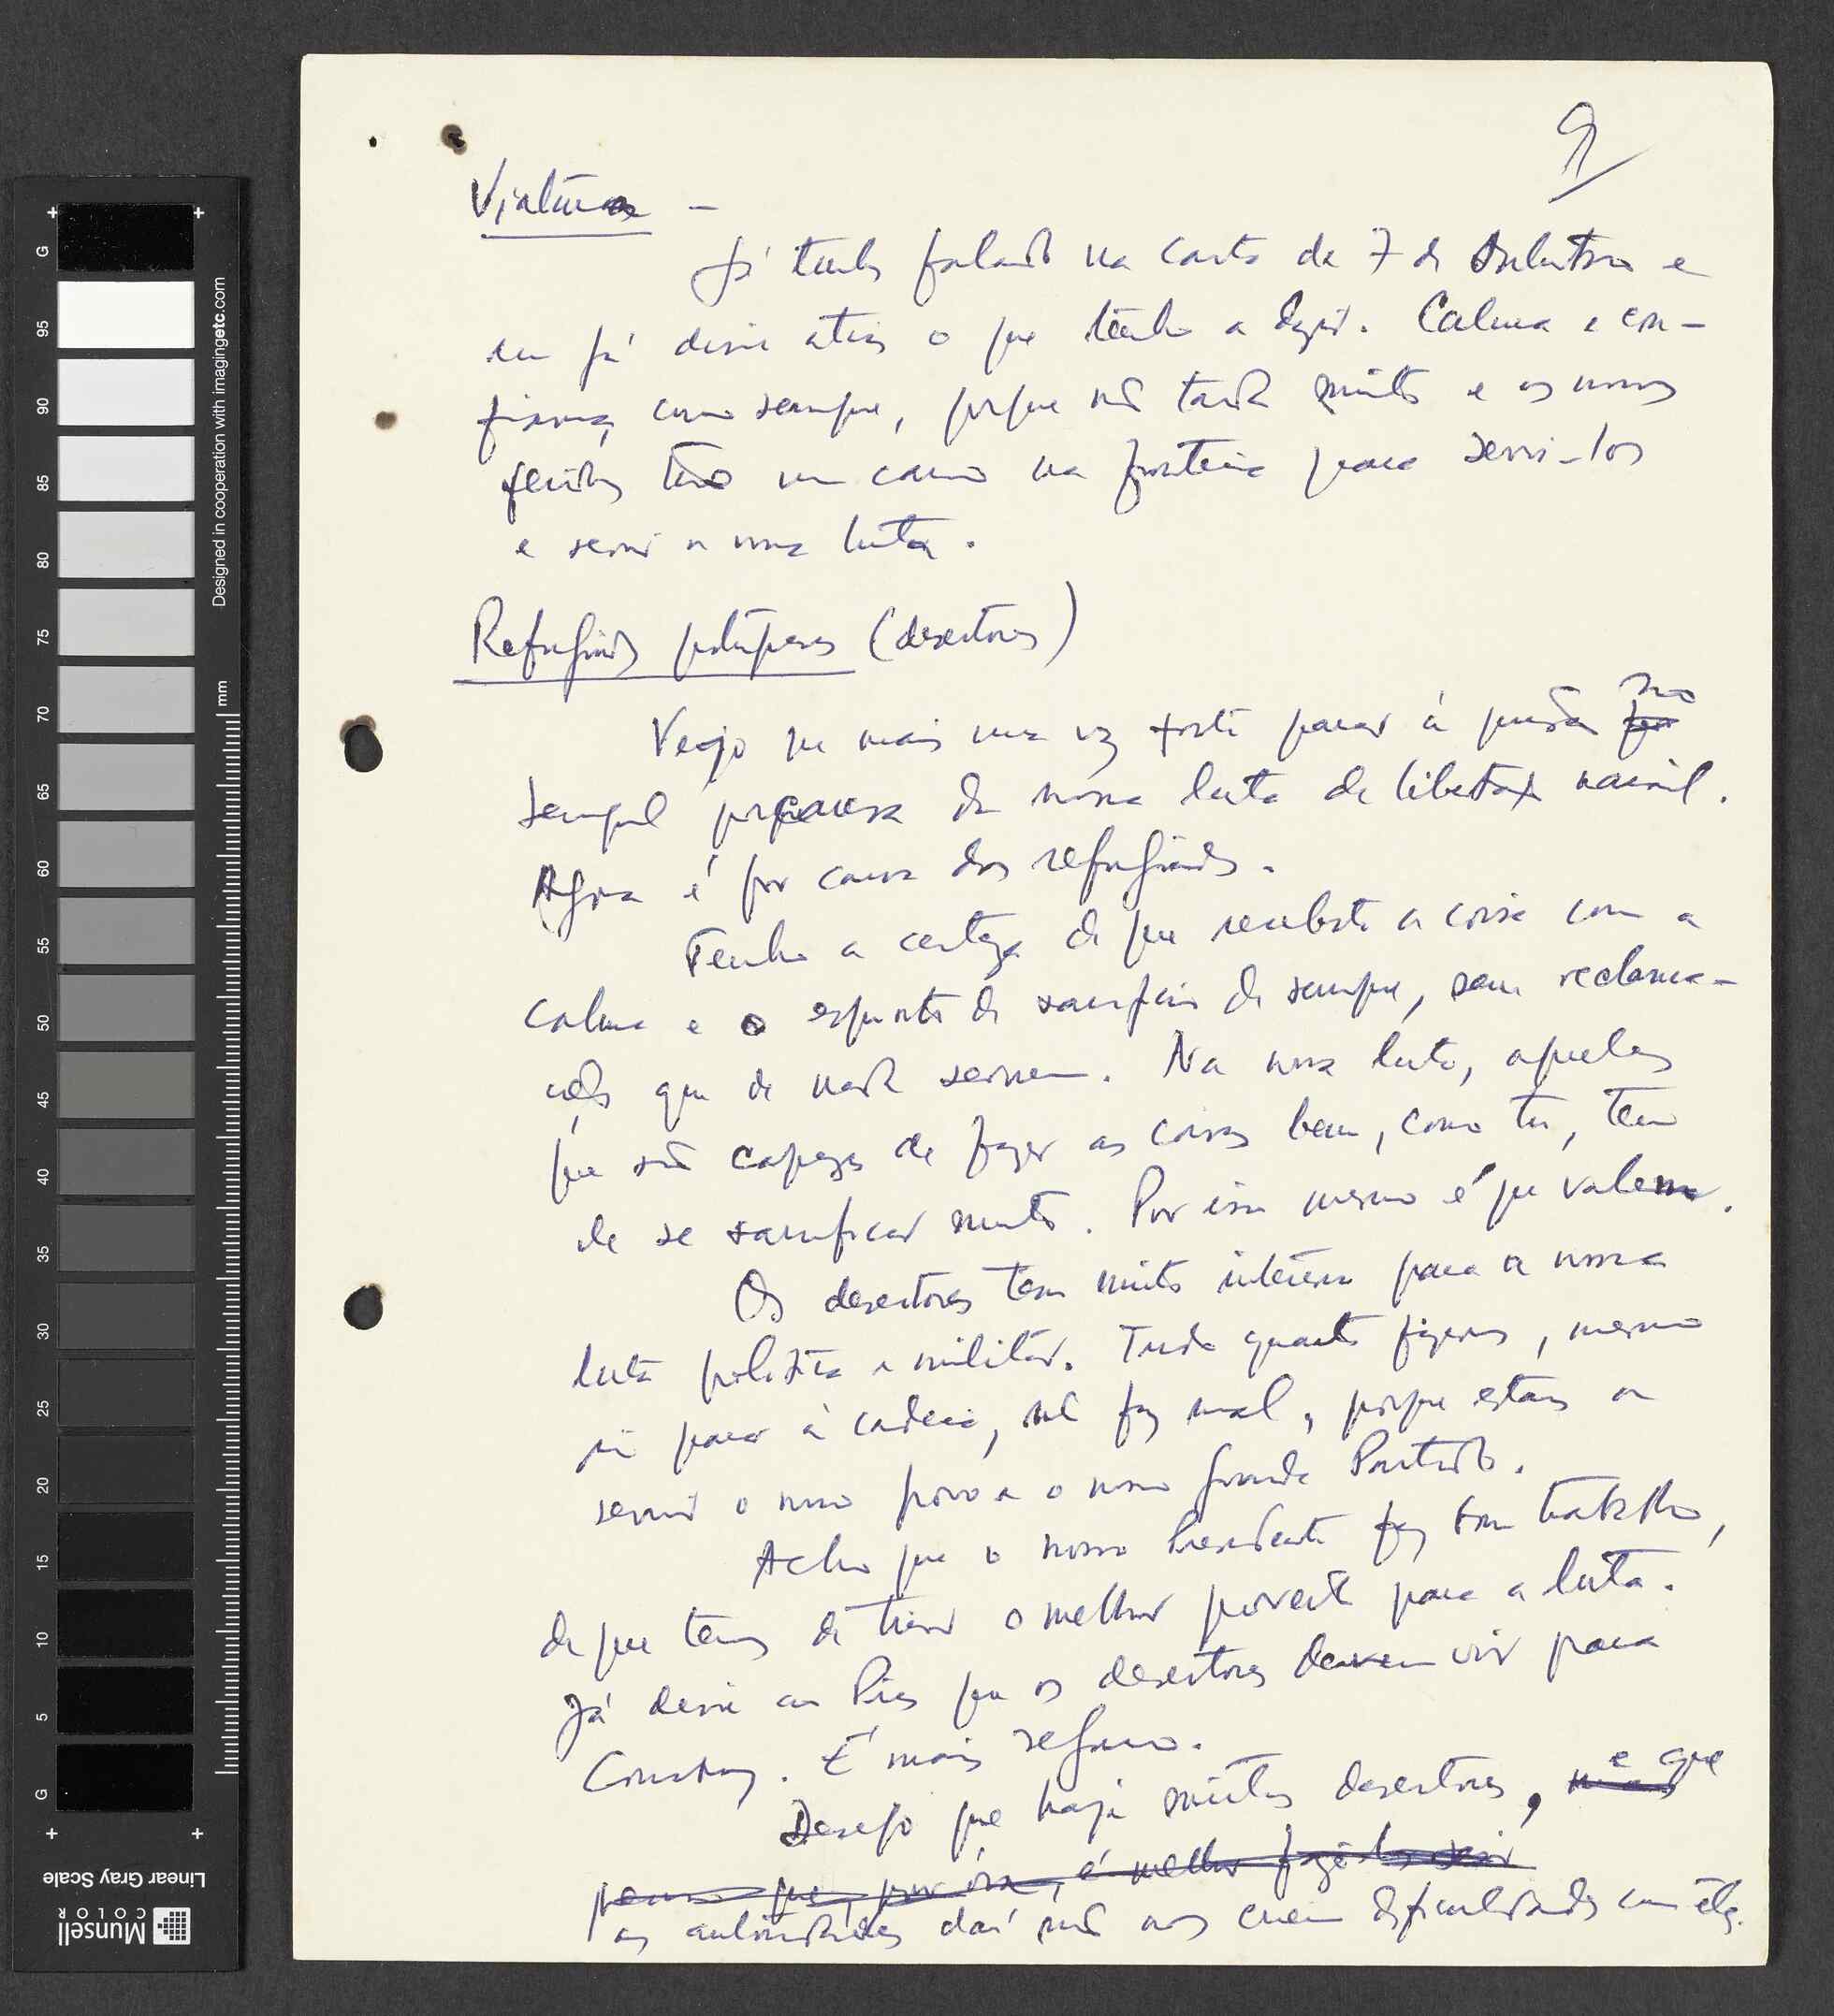 9
Viaturas -
Já tinhas falado na carta de 7 de Outubro e
eu já disse atrás o que tenho a dizer. Calma e con-
fiança, como sempre, porque não tarda muito e os nossos
feridos terão um carro na fronteira para servi-los
e servir a nossa luta.
Refugiados portugueses (desertores)
Vejo que mais uma vez foste parar à prisão no
Senegal por causa da nossa luta de libertação nacional.
Agora é por causa dos refugiados.
Tenho a certeza de que recebeste a coisa com a
calma e o espírito de sacrifício de sempre, sem reclama-
ções que de nada servem. Na nossa luta, aqueles
que são capazes de fazer as coisas bem, como tu, tem
de se sacrificar muito. Por isso mesmo é que valem.
Os desertores tem muito interesse para a nossa
luta política e militar. Tudo quanto fizeres, mesmo
ir parar à cadeia, não faz mal, porque estás a
servir o nosso povo e o nosso grande Partido.
Acho que o nosso Presidente fez bom trabalho,
de que temos de tirar o melhor proveito para a luta.
Já disse ao Pires que os desertores devem vir para
Conakry. É mais seguro.
Desejo que haja muitos desertores, mas e que
penso que, por ora, é melhor
as autoridades daí não nos criem dificuldades com eles.
G 95 90 85 80 75 70 65 60 55 50 45 40 35 30 25 20 15 10 5 G
mm
Designed in cooperation with imagingetc.com
Linear Gray Scale
Munsell
COLOR